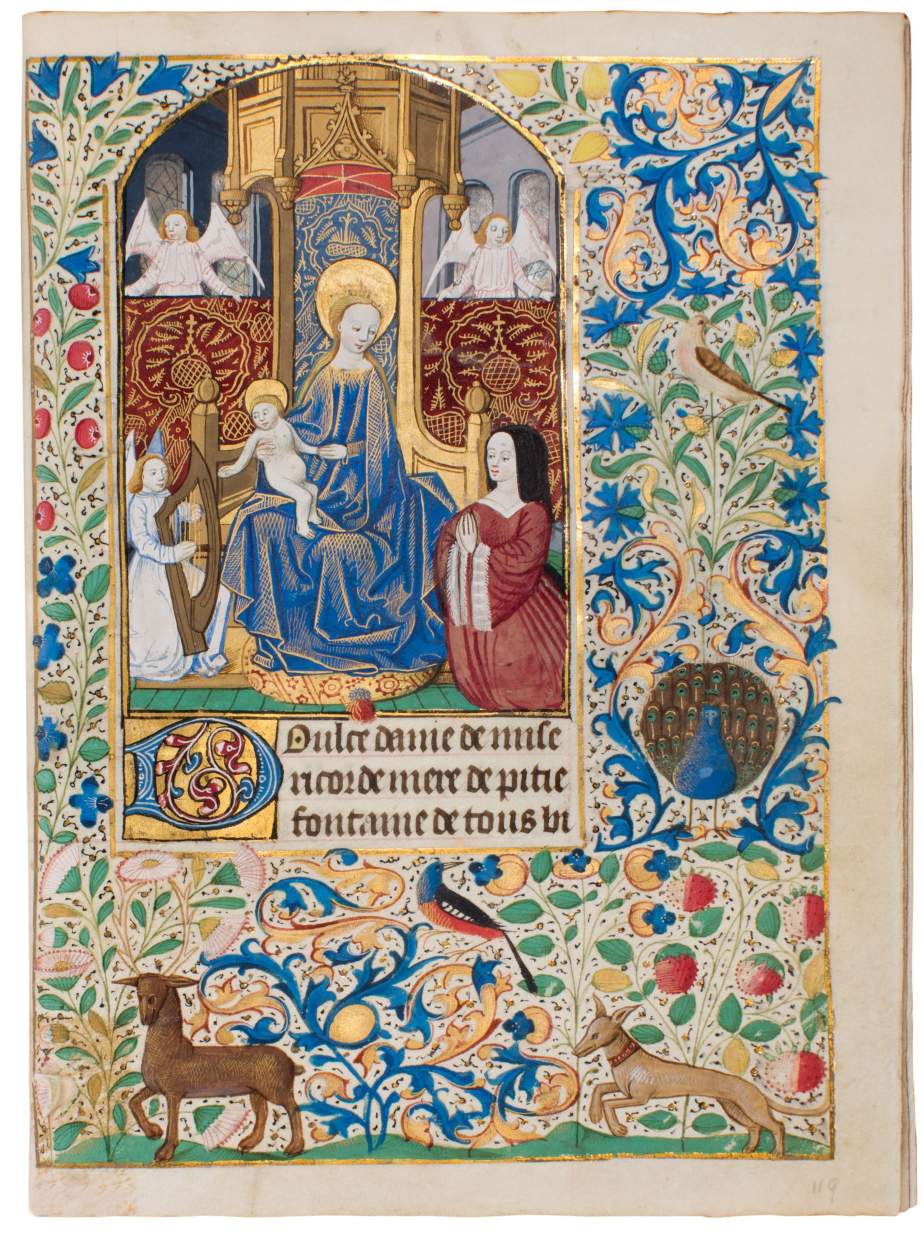 Dulce dame de mise
ricorde mere de pitie
fontaine de tous bi
119